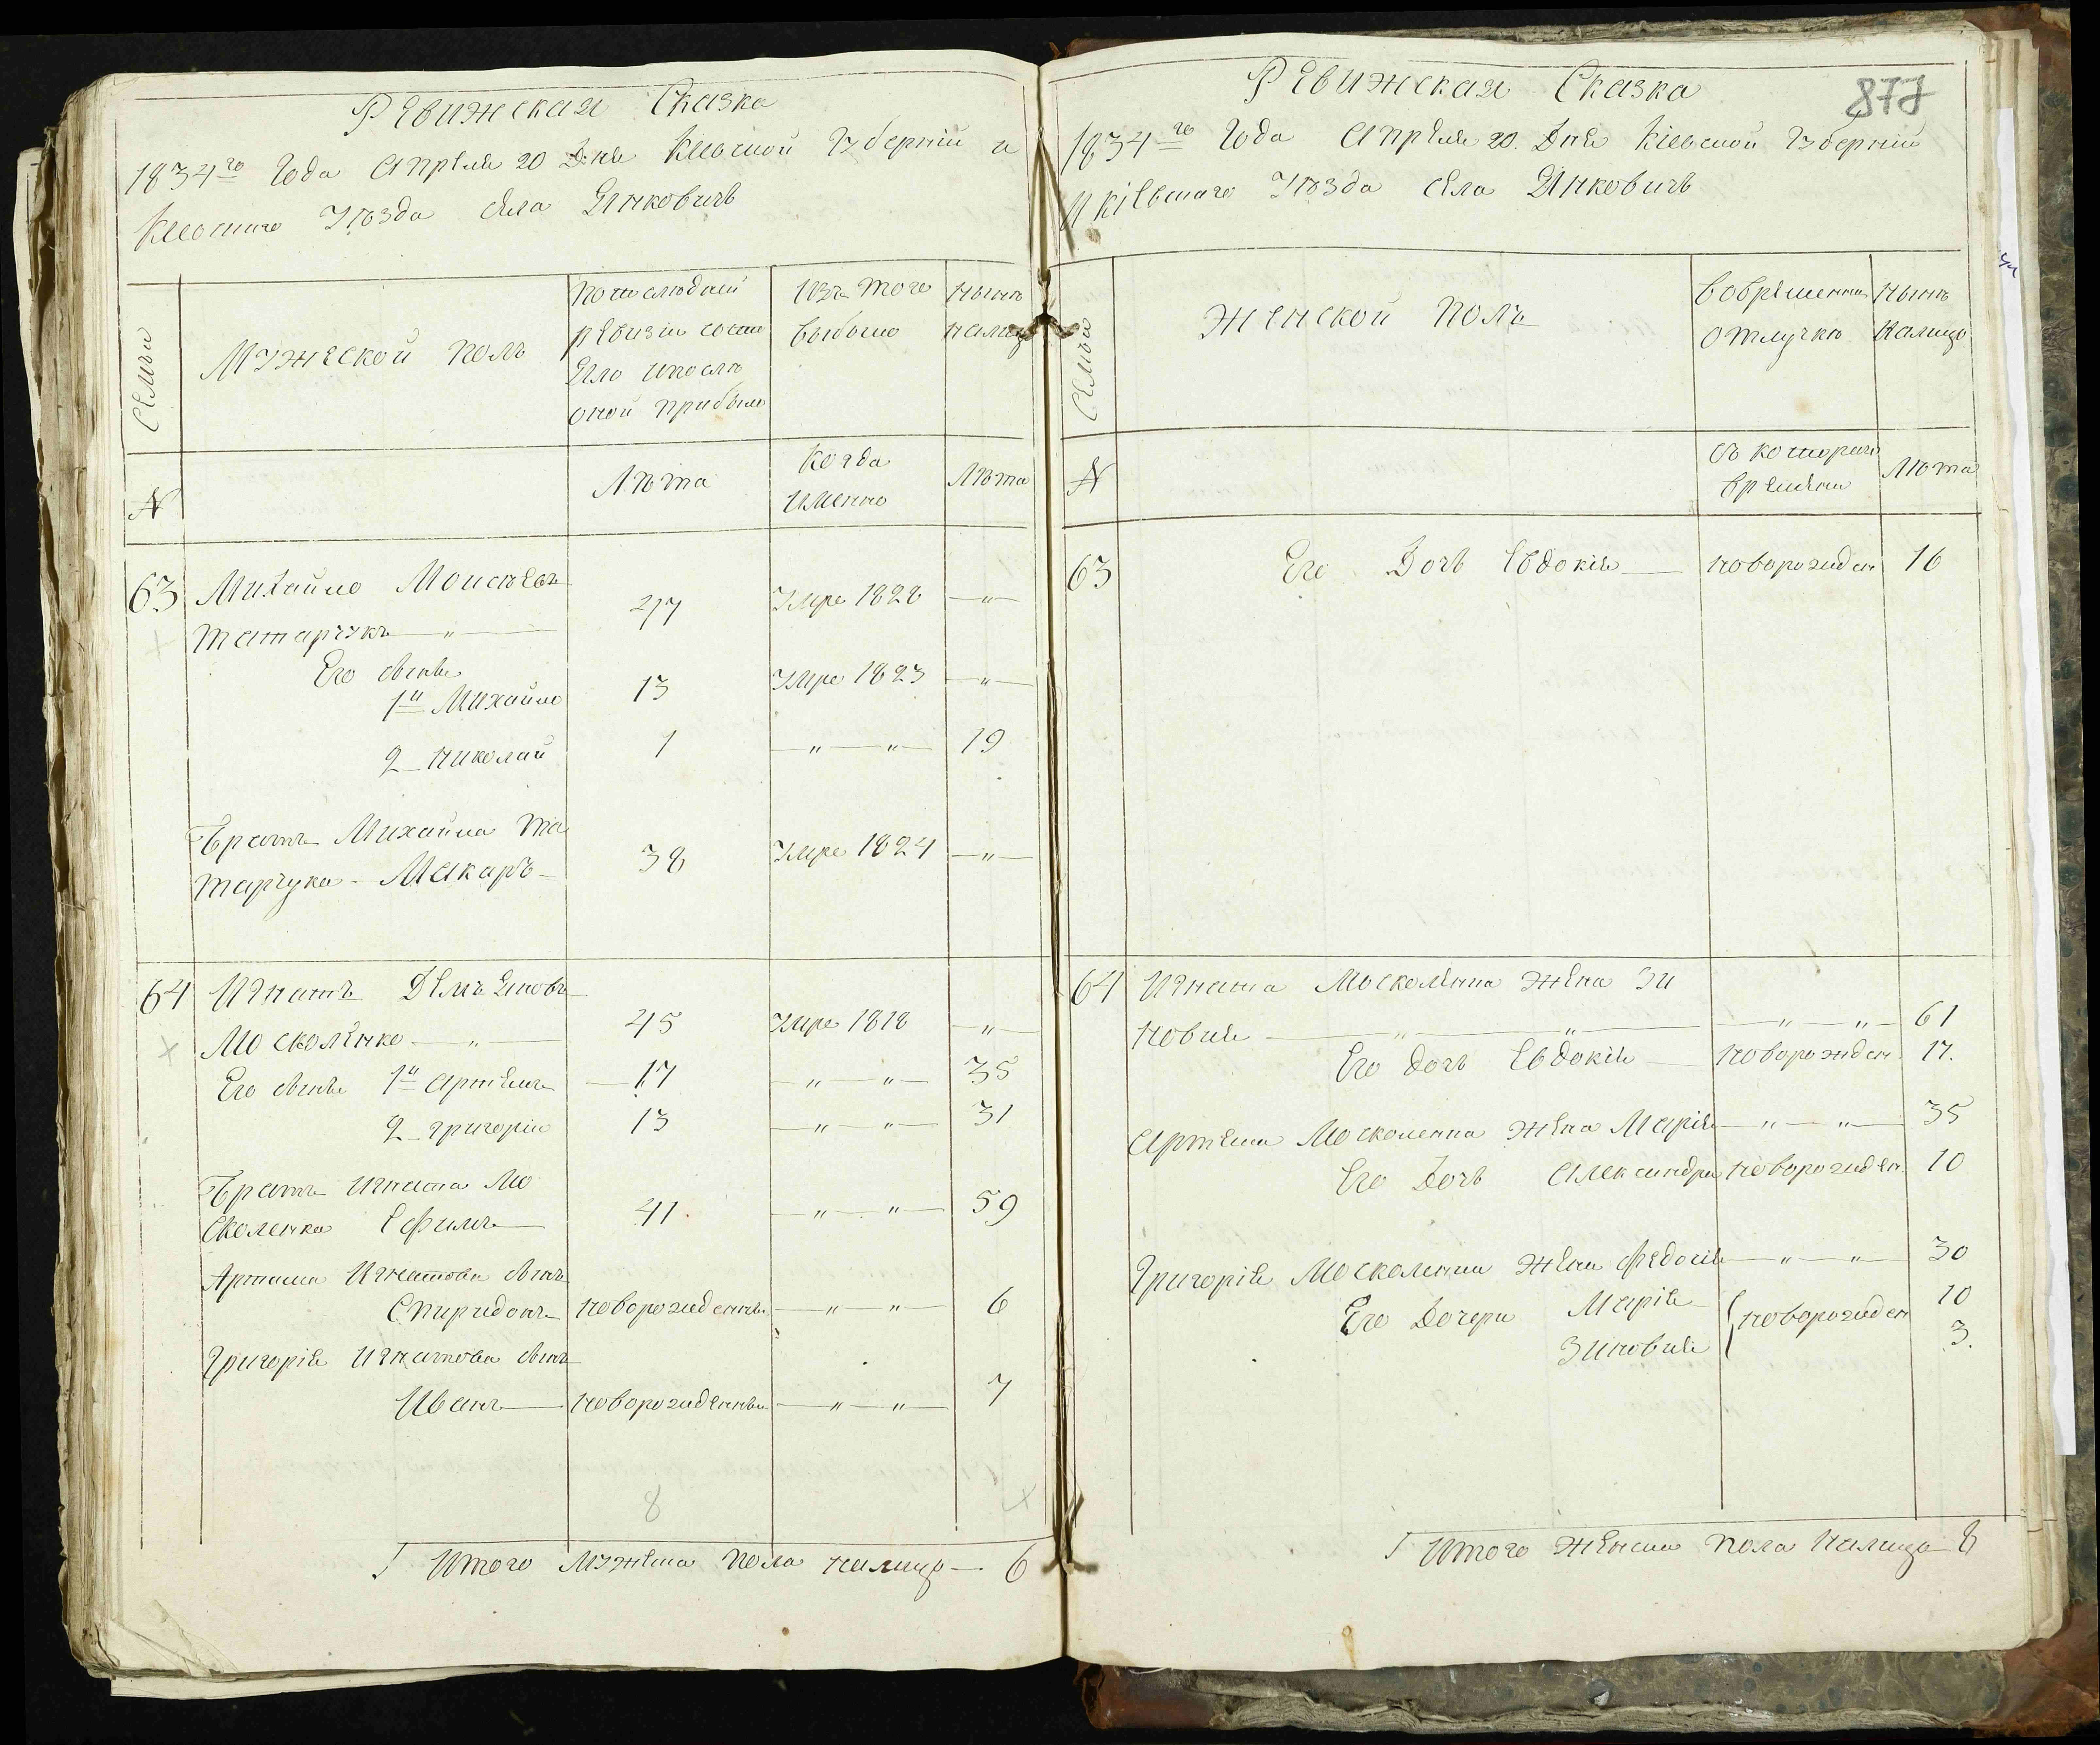 Ревижская Сказка
1834го Года Апреля 20 Дня Киевской Губерній и
Киевскаго Уезда села Янковичь
Семьи
Мужеской полъ
По последней
ревизіи состо
яло ипосле
оной прибыло
Изъ того
выбыло
Ныне
налицо
№
Лѣта
Когда
именно
Лѣта
63 Михайло Моисѣевъ
Татарчукъ — " — 47 Умре 1828 — " —
Его сыны
1й Михайло 13 Умре 1823 — " —
2 Николай 1 — " — " — 19
Братъ Михайла Та
тарчука - Макаръ - 38 Умре 1824 — " —
64 Игнатъ Демъяновъ
Москоленко — " — 45 Умре 1818 — " —
Его сыны 1й Артемъ — 17 — " — " — 35
2 Григорій 13 — " — " — 31
Братъ Игната Мо
сколенка Ефимъ — 41 — " — " — 59
Артема Игнатова сынъ
Спиридонъ новорожденны — " — " — 6
Григорія Игнатова сынъ
Иванъ — новорожденны — " — " — 7
8
Итого мужеска пола налицо — 6
877
Ревижская Сказка
1834го Года Апреля 20. Дня Кіевской Губерній
и Кіевскаго Уезда села Янковичь
Семьи
Женской полъ
Вовременной
отлучке
Ныне
налицо
№
Съ котораго
времени
Лѣта
63 Его Дочь Евдокія — новорожден 16
64 Игната Москоленка жена Зи
новия — " — " — — " — " — 61
Его дочь Евдокія — новорожден 17.
Артема Москоленка жена Марія — " — " — 35
Его Дочь Александра новорожден. 10
Григорія Москоленка жена Федосія — " — " — 30
Его Дочери Марія новорожден 10
Зиновия 3.
Итого женска пола налицо — 8